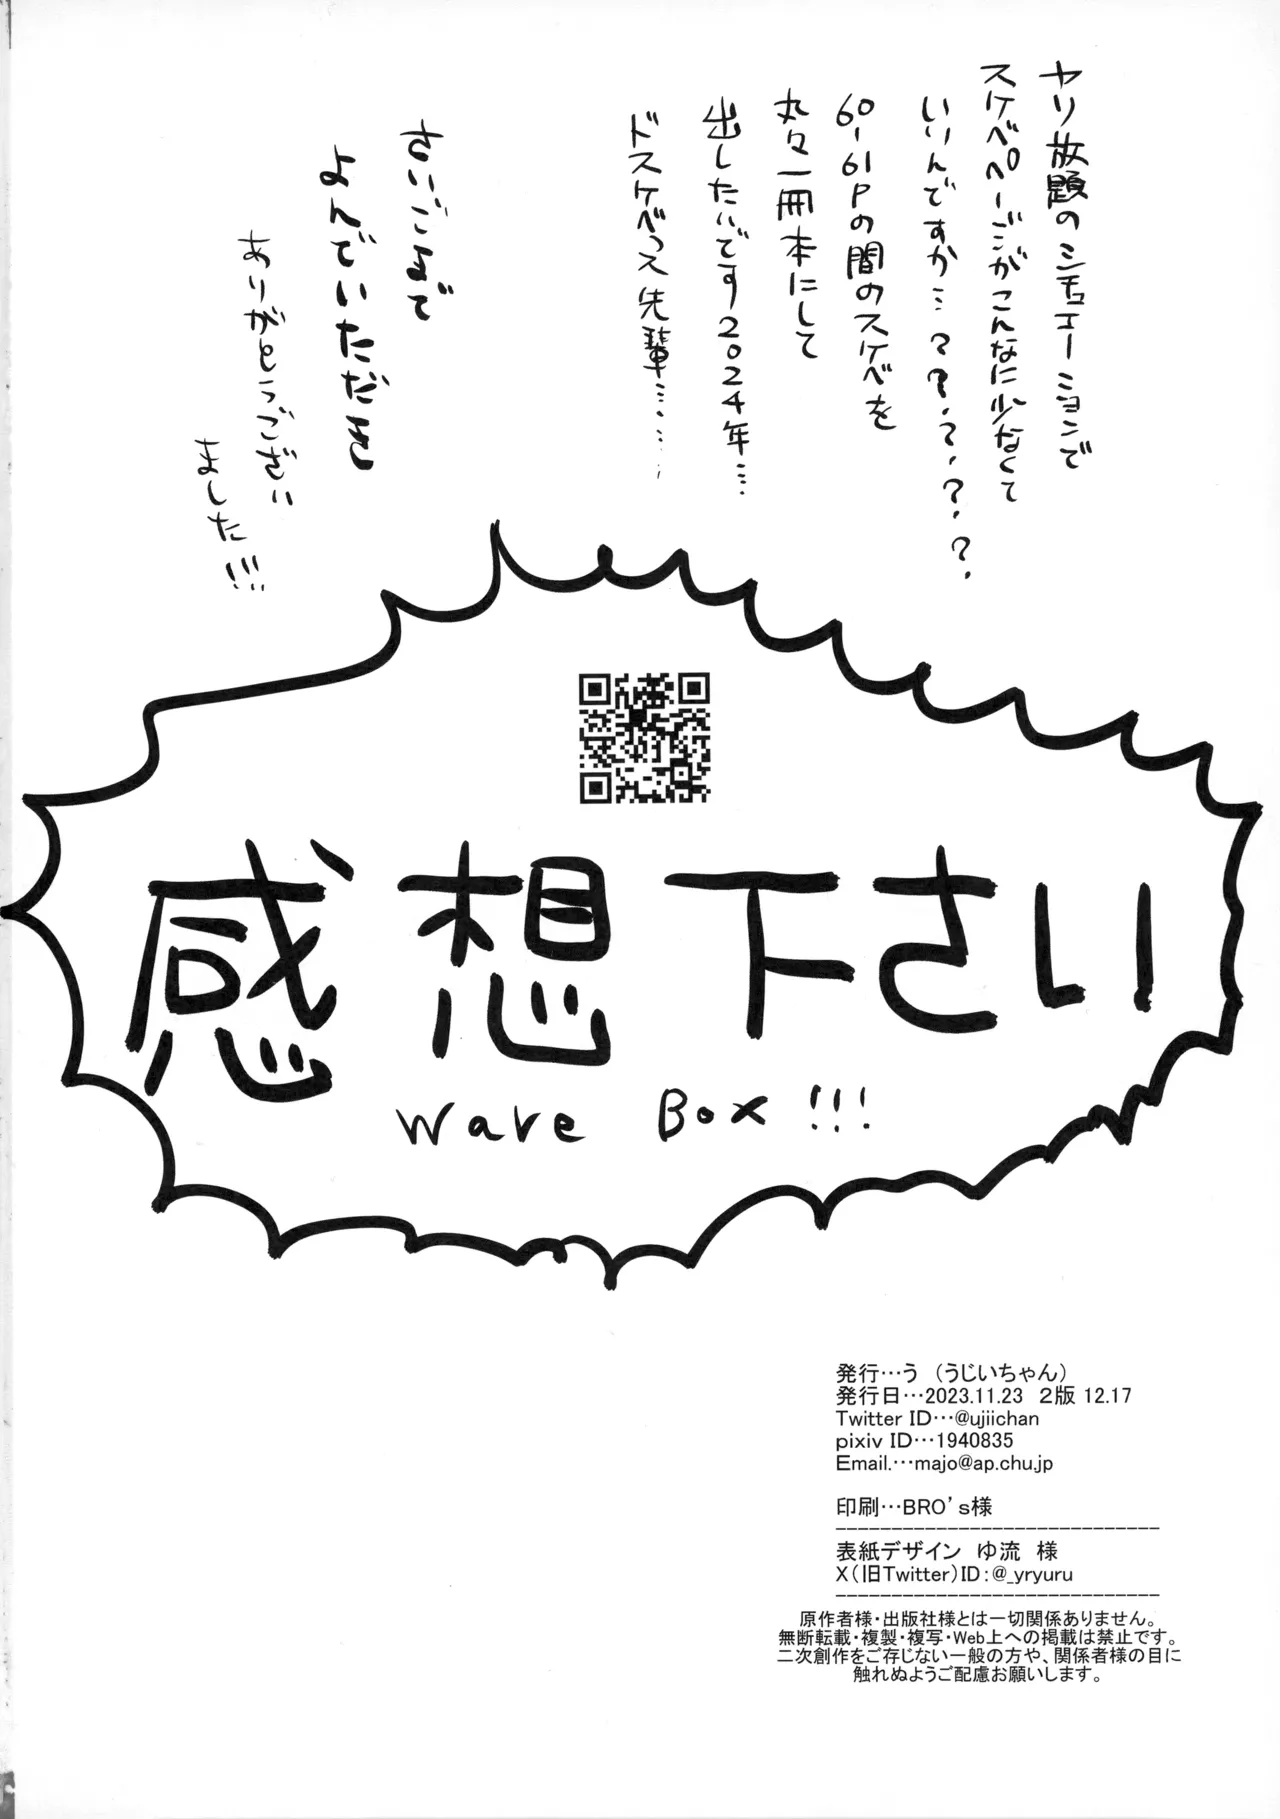 ヤリ放題のシチュエーションで
スケベページがこんなに少なくて
いいんですか…？？？？？？？
60-61Pの間のスケベを
丸々一冊本にして
出したいです2024年…
ドスケベっス先輩………
さいごまで
よんでいただき
ありがとうござい
ました!!!
感想下さい
Wave Box!!!
発行…う（うじいちゃん）
発行日…2023.11.23　2版 12.17
Twitter ID…@ujiichan
pixiv ID…1940835
Email.…majo@ap.chu.jp
印刷…BRO's様
表紙デザイン　ゆ流　様
X（旧Twitter）ID：@_yryuru
原作者様・出版社様とは一切関係ありません。
無断転載・複製・複写・Web上への掲載は禁止です。
二次創作をご存じない一般の方や、関係者様の目に
触れぬようご配慮お願いします。